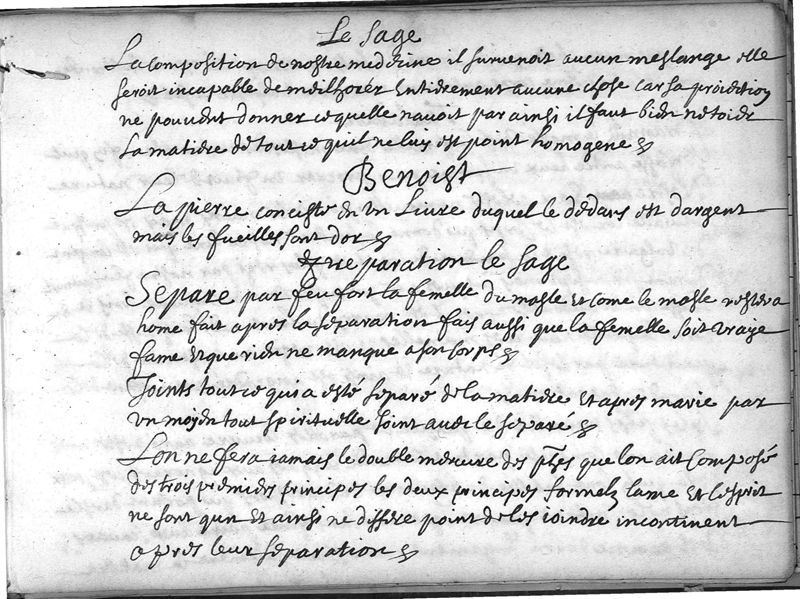 Le sage
La composition de nostre medecine il suruenoit aucun meslange elle
seroit incapable de meilhorer entierement aucune chose car sa proiection
ne pouuent donner ce quelle nauoit par ainsi il faut bien netoier
la matiere de tout ce quil ne luy est point homogene
Benoist
La pierre conciste en un Liure duquel le dedans est dargent
mais les fueilles sont dor
Preparation le sage
Separe par feu fort la femelle du masle et come le masle restera
home fait apres la separation fais aussi que la femelle soit uraye
fame et que rien ne manque a son corps
Joints tout ce qui a esté separé de la matiere et apres marie par
un moyen tout spirituelle joint auec le separé
Lon ne fera iamais le double mercure des ptes que lon ait composé
des trois premiers principes les deux principes formels lame et lesprit
ne sont qun et ainsi ne differe point de les ioindre incontinent
apres leur separation